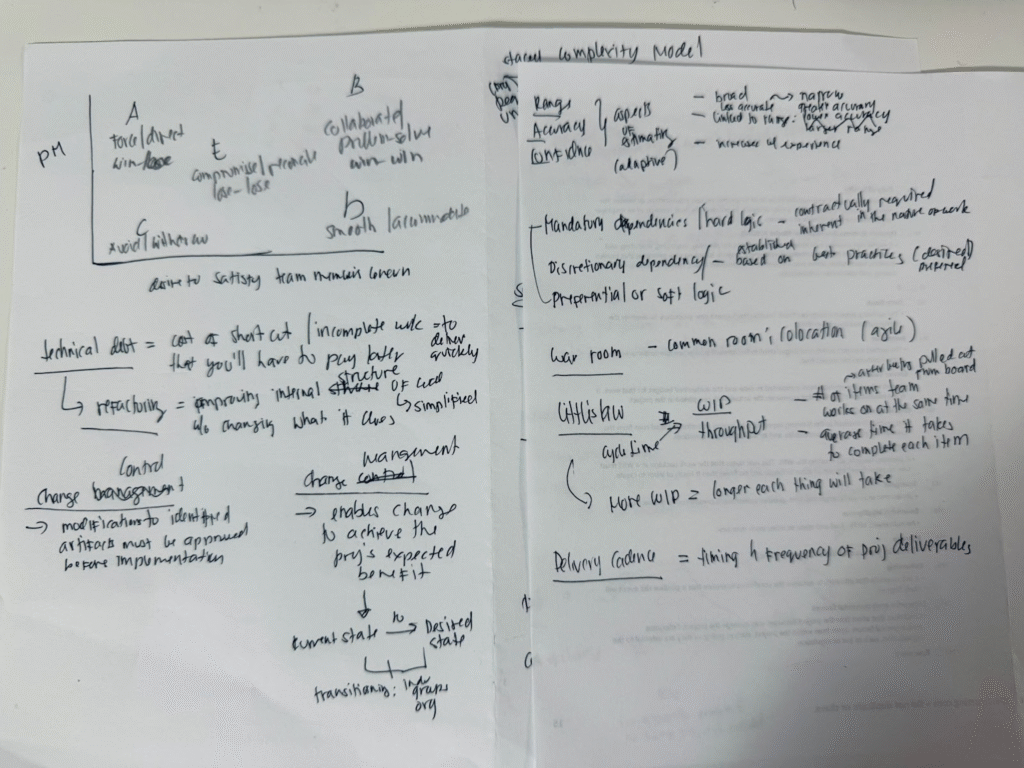 PM
A
force/direct
win-lose
B
collaborate/
problem solve
win-win
E
compromise/reconcile
lose-lose
C
avoid/withdraw
D
smooth/accommodate
desire to satisfy team members
technical debt = cost of short cut/incomplete work = to
that you'll have to pay later deliver
quickly
structure
refactoring = improving internal of code
w/o changing what it does simplified
Control
Change
→ modifications to identified
artifacts must be approved
before implementation
management
Change control
→ enables change
to achieve the
proj's expected
benefit
current state to → Desired
state
transitioning: indv
groups
org
complexity Model
Range
Accuracy
Confidence
aspects
of
estimating
(adaptive)
- broad → narrow
less accurate greater accuracy
- linked to range: lower accuracy
larger range
- increases w/ experience
Mandatory dependencies/hard logic - contractually required
inherent in the nature of work
Discretionary dependency/ - established
based on best practices (desired)
preferred
preferential or soft logic
war room - common room; colocation (agile)
Little's law
cycle time
WIP
throughput
→ after being pulled out
from board
- # of items team
works on at the same time
- average time it takes
to complete each item
More WIP = longer each thing will take
Delivery Cadence = timing & frequency of proj deliverables